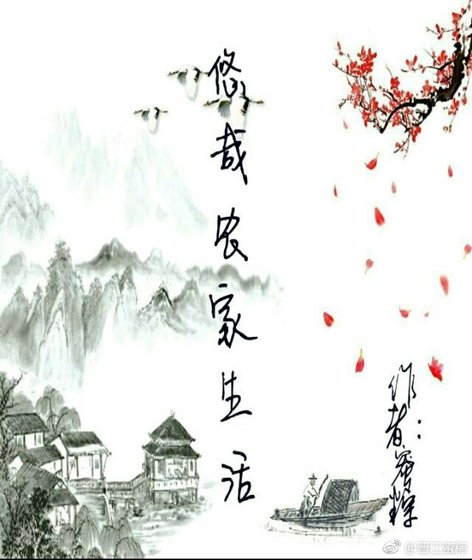 悠哉农家生活
作者: